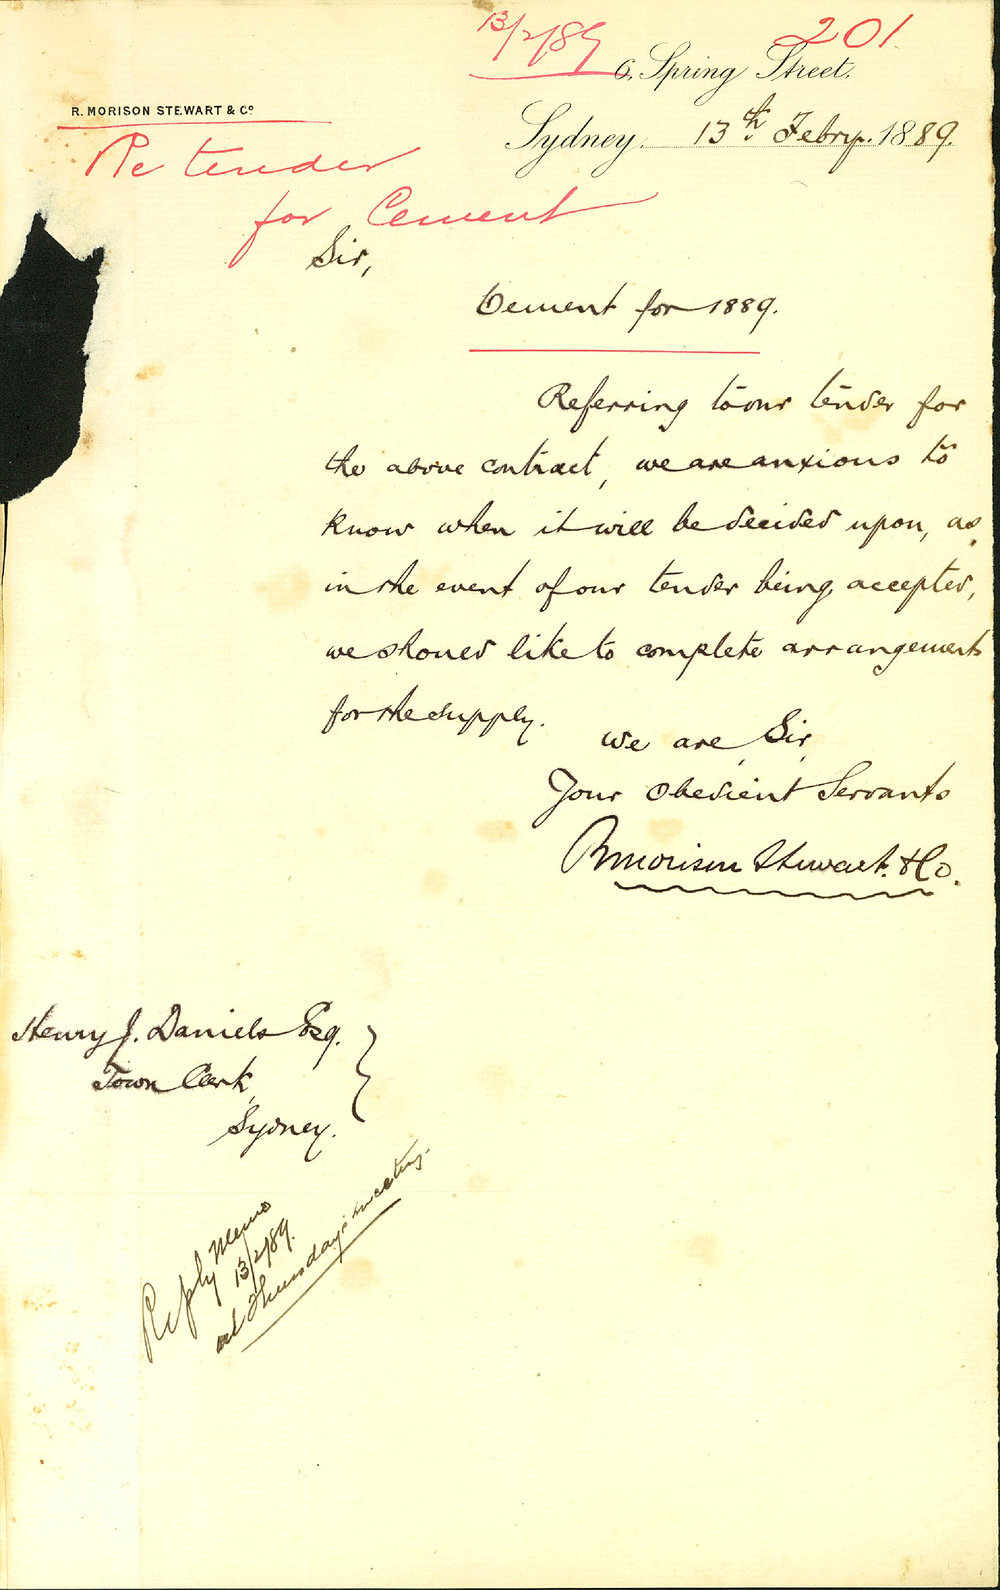 13/2/89 201
6, Spring Street.
R. MORISON STEWART & Co
Sydney. 13th Febry. 1889.
Re tender
for Cement
Sir,
Cement for 1889.
Referring to our tender for
the above contract, we are anxious to
know when it will be decided upon, as
in the event of our tender being accepted,
we should like to complete arrangements
for the supply.
We are, Sir,
Your Obedient Servants
R Morison Stewart & Co.
Henry J. Daniels Esq.
Town Clerk,
Sydney.
Reply Memo
13/2/89.
at Thursday's meeting.